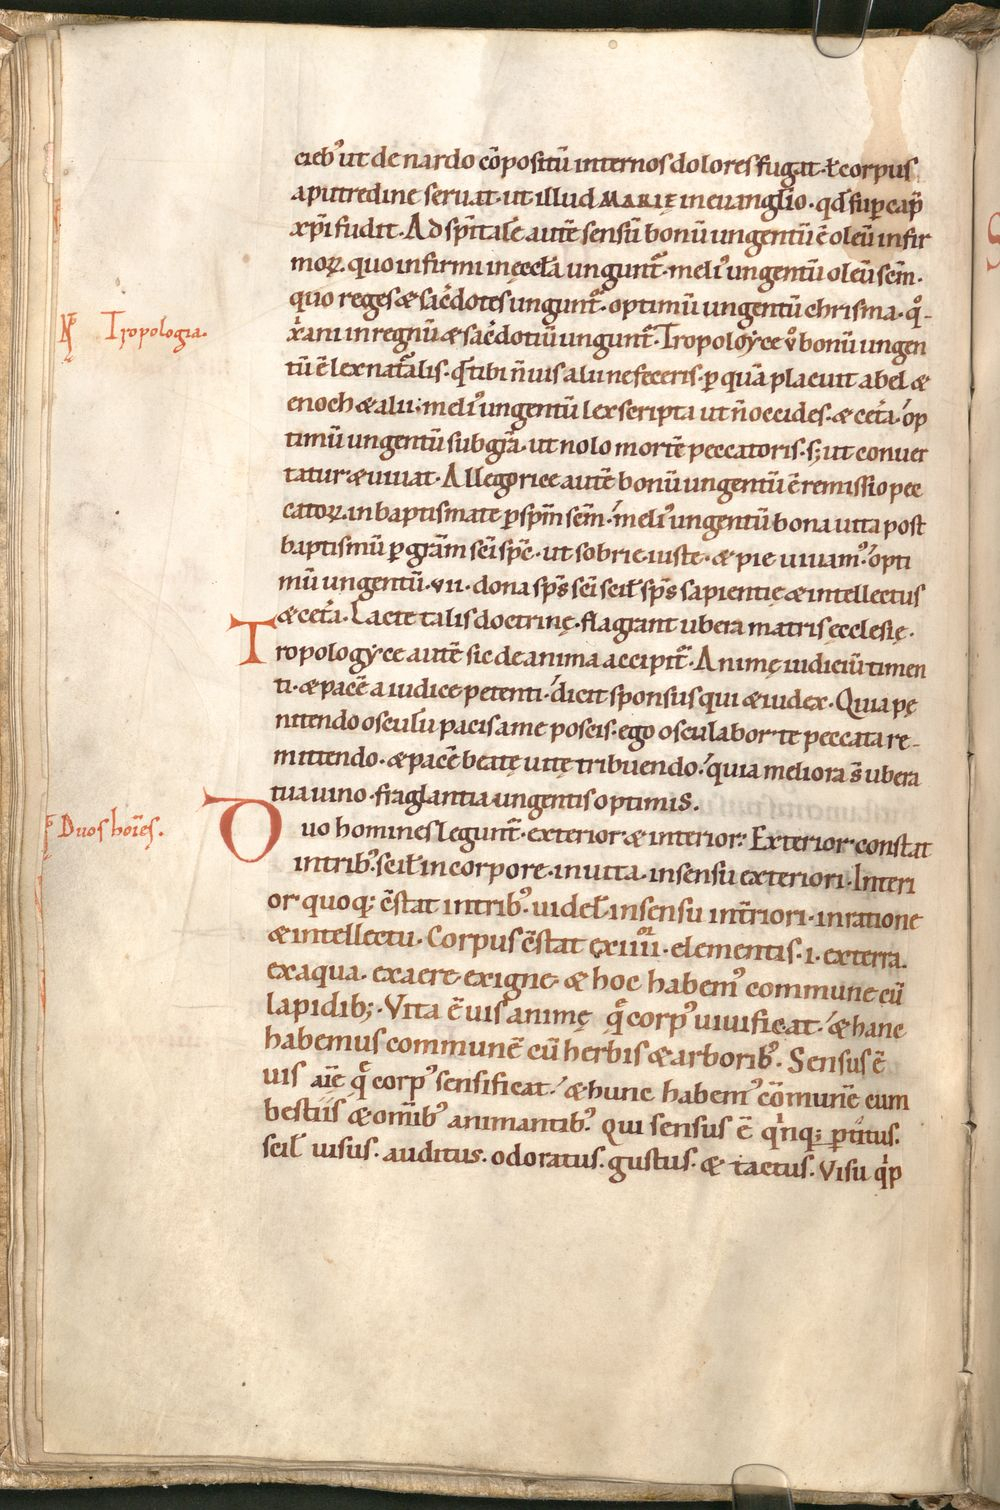 cieb᷒ ut de nardo cōpositū internos dolores fugat · ł corpus
a putredine seruat · ut illud MARIĘ in euanglio · qd̄ sup cap̄
xp̄i fudit · Ad sp̄itale autē sensū bonū ungentū ē oleū infir
moꝝ. quo infirmi in ęccła ungunt᷑ · meli᷒ ungentū oleū sc̄m ·
quo reges & sac̄dotes ungunt᷑ · optimū ungentū chrisma · qͦ-
xp̄ani in regnū & sac̄dotiū ungunt᷑ · Tropoloẏce ů bonū ungen
Tropologia.
tū ē lex nat᷑alis · q̄ tibi n̄ uis alii ne feceris · p quā placuit abel &
enoch & alii; meli᷒ ungentū lex scripta ut n̄ occides · & cet̄a · op
timū ungentū sub gr̄a · ut nolo mortē peccatoris · s; ut conuer
tatur & uiuat · Allegorice autē bonū ungentū ē remissio pec
catoꝝ. in baptismate p sp̄m sc̄m · meli᷒ ungentū bona uita post
baptismū p gr̄am sc̄i sp̄c · ut sobrie iuste · & pie uiuam᷒ · opti
mū ungentū · vii · dona sp̄s sc̄i scił sp̄s sapientię & intellectus
& cet̄a · Lacte talis doctrinę · flagrant ubera matris ęcclesię ·
Tropologẏce autē sic de anima accipit᷑ · Animę iudiciū timen
ti · & pacē a iudice petenti · dicit sponsus qui & iudex · Quia pę
nitendo osculū pacis a me poscis · ego osculabor te peccata re-
mittendo · & pacē beatę uitę tribuendo · quia meliora s̄ ubera
tua uino · fraglantia ungentis optimis.
Duos hoīes.
Duo homines legunt᷑ · exterior & interior: Exterior constat
in trib᷒ scił in corpore · in uita · in sensu exteriori · Interi
or quoq; c̄stat in trib᷒ · uidel̄ in sensu int̄riori · in ratione
& intellectu · Corpus c̄stat ex iiii᷒ͦʳ · elementis · i · ex terra.
ex aqua · ex aere · ex igne · & hoc habem᷒ commune cū
lapidib; · Vita ē uis animę q̄ corp᷒ uiuificat · & hanc
habemus communē cū herbis & arborib᷒ · Sensus ē
uis aīę q̄ corp᷒ sensificat · & hunc habem᷒ cōmunē cum
bestiis & omīb᷒ animantib᷒ · Qui sensus ē qͥnq; ptitus.
scił uisus · auditus · odoratus · gustus · & tactus · Visu qͥp